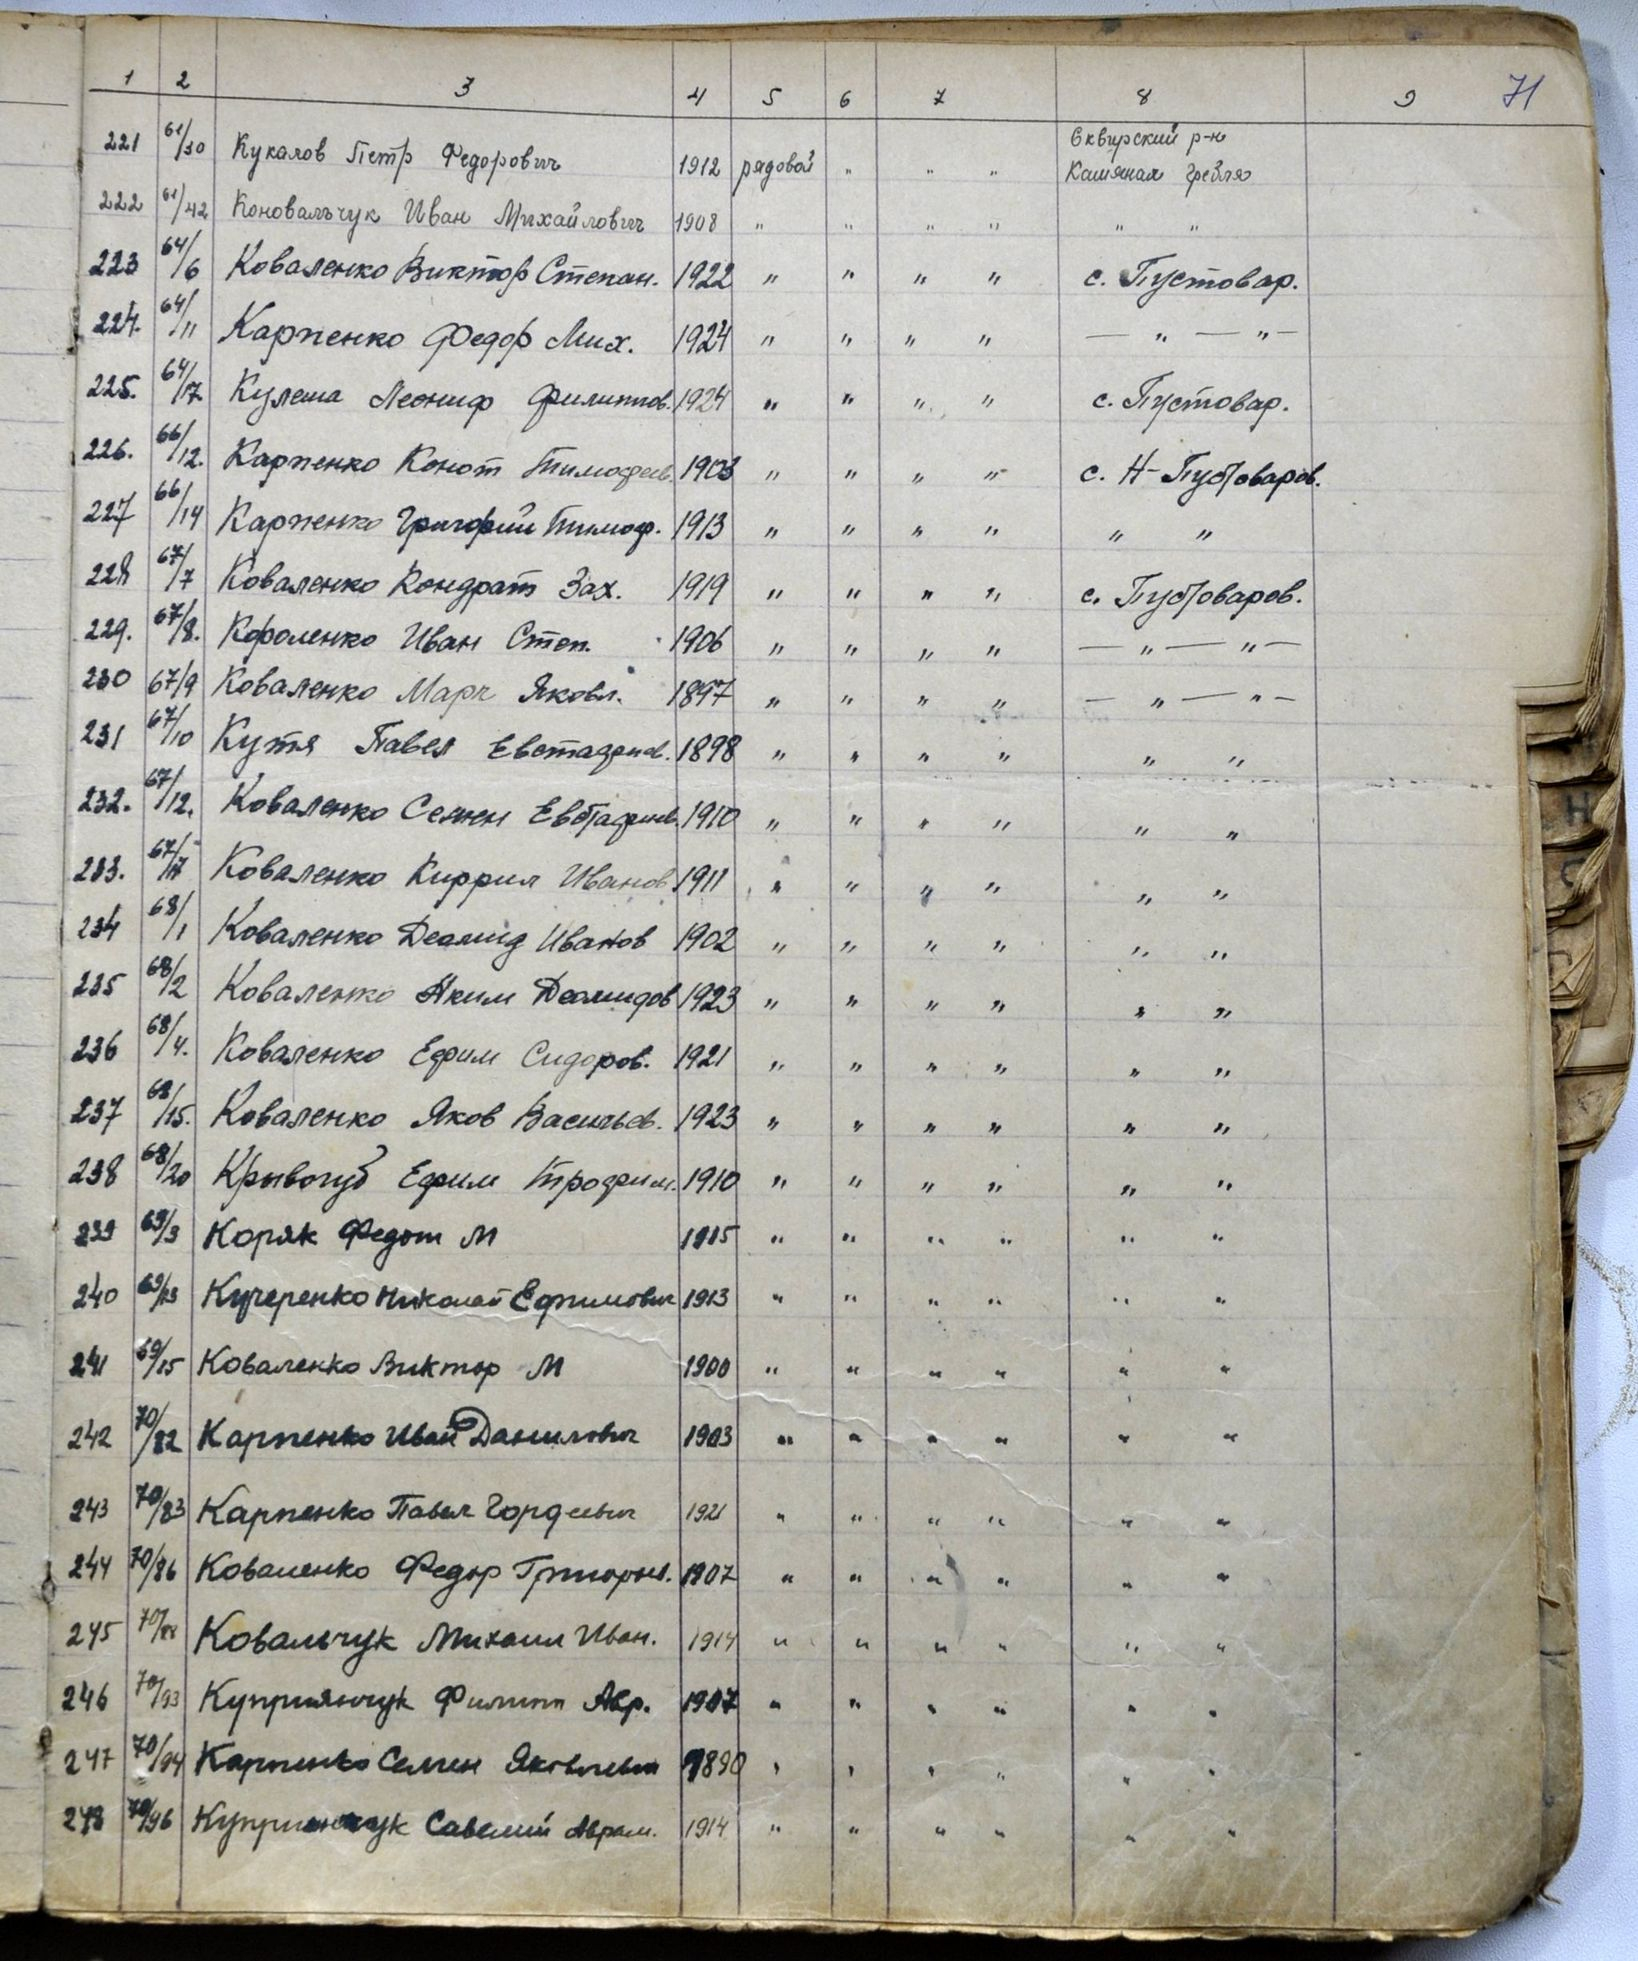 1 2 3 4 5 6 7 8 9 71
Сквирский р-н
221 61/30 Кукалов Петр Федорович 1912 рядовой " " " Камяная Гребля
222 61/42 Коновальчук Иван Михайлович 1908 " " " " " "
223 64/6 Коваленко Виктор Степан. 1922 " " " " с. Пустовар.
224. 64/11 Карпенко Федор Мих. 1924 " " " " — " — " —
225. 64/17. Кулеша Леонид Филиппов. 1924 " " " " с. Пустовар.
226. 66/12. Карпенко Конот Тимофеев. 1903 " " " " с. Н-Пустоваров.
227 66/14 Карпенко Григорий Тимоф. 1913 " " " " " "
228 67/7 Коваленко Кондрат Зах. 1919 " " " " с. Пустоваров.
229. 67/8. Короленко Иван Степ. 1906 " " " " — " — " —
230 67/9 Коваленко Марк Яковл. 1897 " " " " — " — " —
231 67/10 Кутя Павел Евстафиев. 1898 " " " " " "
232. 67/12. Коваленко Семен Евстафиев. 1910 " " " " " "
233. 67/17 Коваленко Киррил Иванов 1911 " " " " " "
234 68/1 Коваленко Демид Иванов 1902 " " " " " "
235 68/2 Коваленко Яким Демидов 1923 " " " " " "
236 68/4. Коваленко Ефим Сидоров. 1921 " " " " " "
237 68/15. Коваленко Яков Васильев. 1923 " " " " " "
238 68/20 Крывогуб Ефим Трофим. 1910 " " " " " "
239 69/3 Коряк Федот М 1915 " " " " " "
240 69/13 Кучеренко Николай Ефимович 1913 " " " " " "
241 69/15 Коваленко Виктор М 1900 " " " " " "
242 70/82 Карпенко Иван Данилович 1903 " " " " " "
243 70/83 Карпенко Павел Гордеевич 1921 " " " " " "
244 70/86 Коваленко Федор Григорьев. 1907 " " " " " "
245 70/88 Ковальчук Михаил Иван. 1914 " " " " " "
246 70/93 Куприянчук Филипп Авр. 1907 " " " " " "
247 70/94 Карпенко Семен Яковлевич 1890 " " " " " "
248 70/96 Куприянчук Савелий Аврам. 1914 " " " " " "